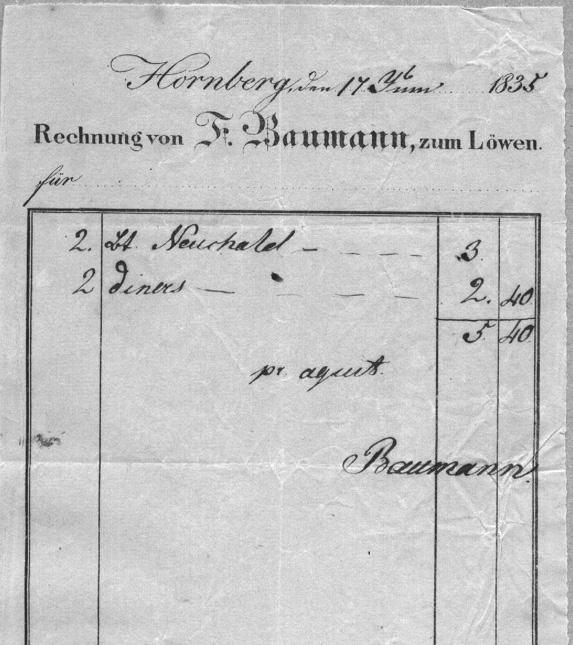 Hornberg, den 17 Juni 1835
Rechnung von F. Baumann, zum Löwen.
für
2. Bt. Neuchatel — 3
2 diners — 2. 40
5 40
pr. aquit.
Baumann.